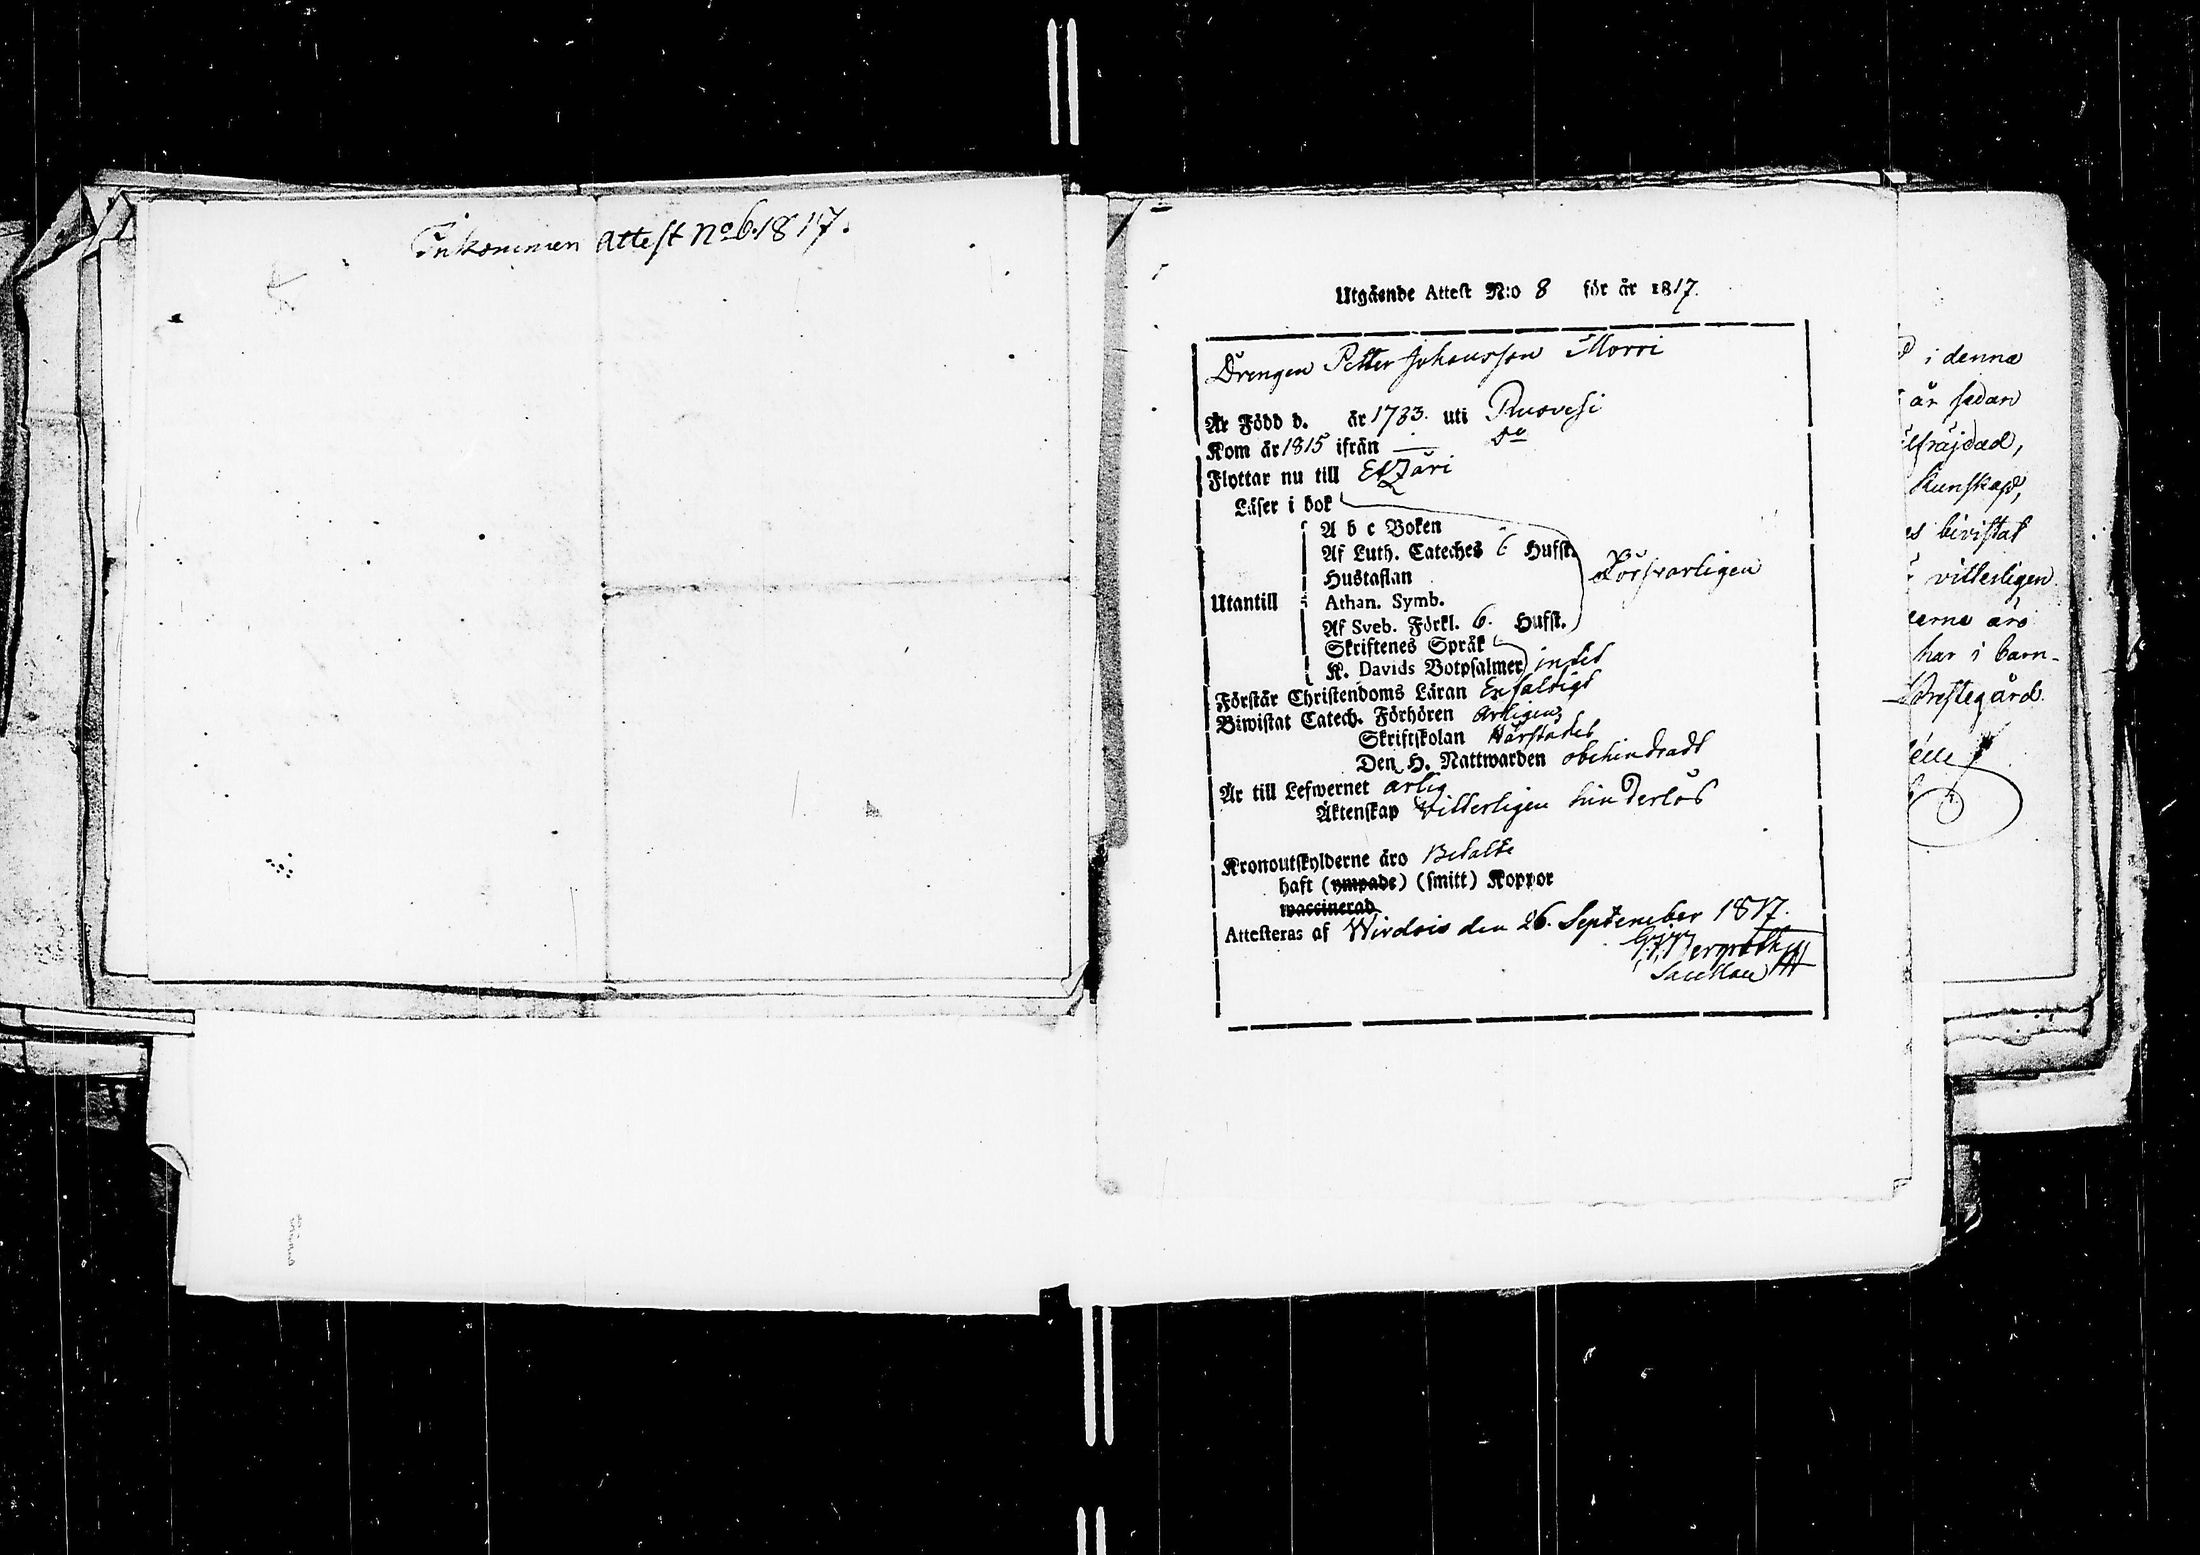 Inkommen Attest No 6. 1817.
Utgående Attest N:o 8 för år 1817.
Drengen Petter Johansson Morri
Är Född d. år 1783. uti Ruovesi
Kom år 1815 ifrån — do
Flyttar nu till Etzäri
Läser i bok
A b c Boken
Af Luth. Cateches 6 Hufst.
Hustaflan
Försvarligen
Utantill
Athan. Symb.
Af Sveb. Förkl. 6. Hufst.
Skriftenes Språk
K. Davids Botpsalmer intet
Förstår Christendoms Läran Enfaldigt
Biwistat Catech. Förhören Årligen
Skriftskolan Härstädes
Den H. Nattwarden obehindradt
Är till Lefwernet ärlig
Äktenskap vitterligen hinderlös
Kronoutskylderne äro Betalte
haft (ympade) (smitt) Koppor
waccinerad
Attesteras af Wirdois den 26. September 1817.
Sacellan
i denna
år sedan
älfräjdad,
Kunskap,
bivistat
vitterligen
äro
har i barn-
Prestegård